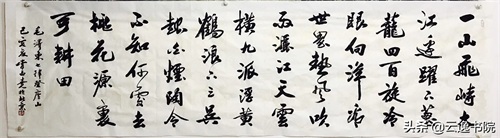 一山飛峙大
江邊躍上葱
蘢四百旋冷
眼向洋看
世界熱風吹
雨灑江天雲
橫九派浮黃
鶴浪下三吳
起白煙陶令
不知何處去
桃花源裏
可耕田
毛澤東七律登廬山
己亥夏雲
头条 @云逸书院